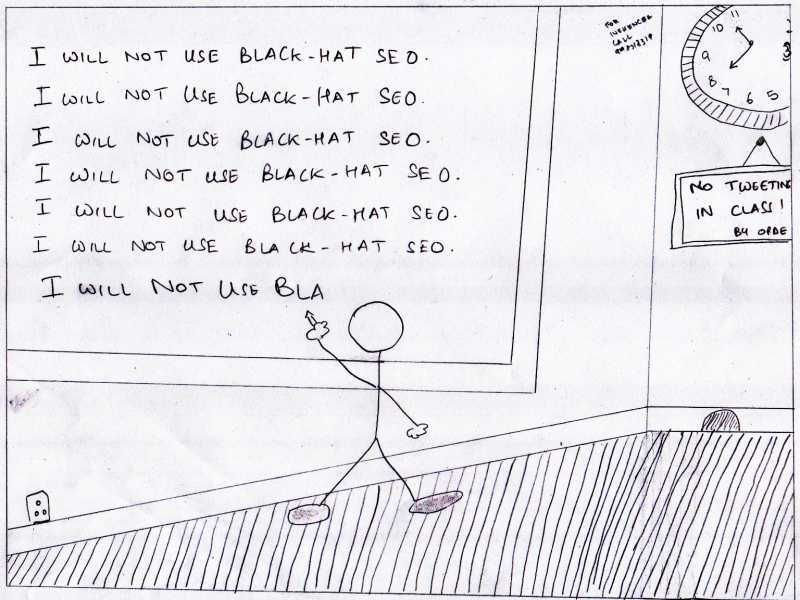 I WILL NOT USE BLACK-HAT SEO.
I WILL NOT USE BLACK-HAT SEO.
I WILL NOT USE BLACK-HAT SEO.
I WILL NOT USE BLACK-HAT SEO.
I WILL NOT USE BLACK-HAT SEO.
I WILL NOT USE BLACK-HAT SEO.
I WILL NOT USE BLA
FOR
CALL
11
10
9
8
7
6
5
3
NO TWEETING
IN CLASS!
BY ORDE